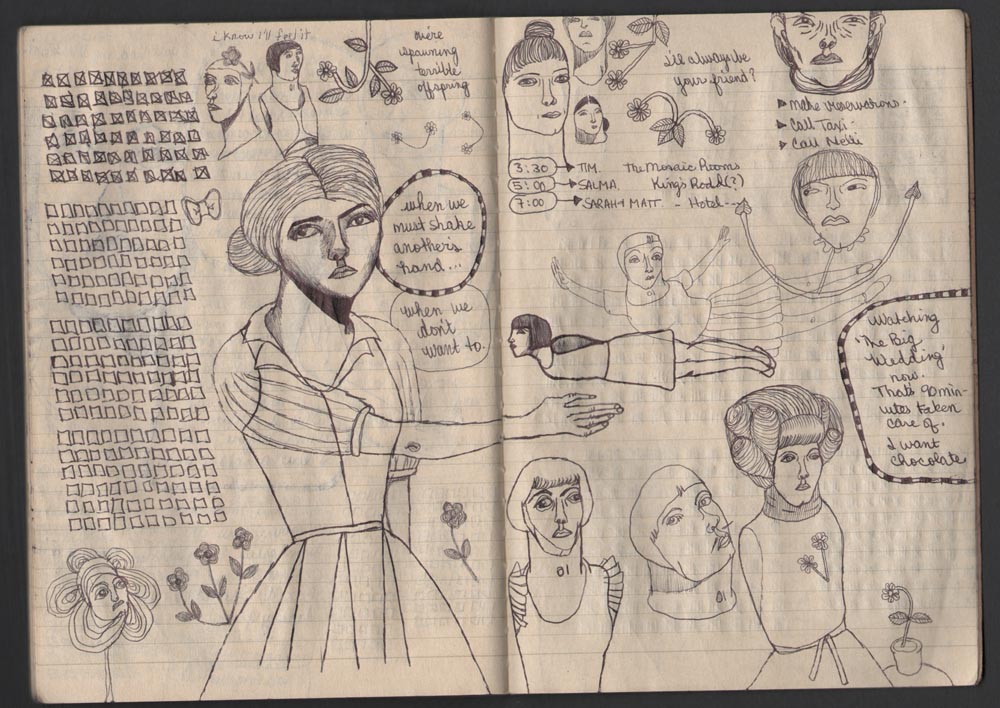 i know i'll feel it
we're
spawning
terrible
offspring
when we
must shake
another's
hand...
when we
don't
want to.
i'll always be
your friend?
make reservations.
Call Tavi-
Call Nelli
3:30 TIM. The Mosaic Rooms
5:00 SALMA. King's Road(?)
7:00 SARAH & MATT. - Hotel---
Watching
'The Big
Wedding'
now.
That's 90 min-
utes taken
care of.
I want
chocolate
01
01